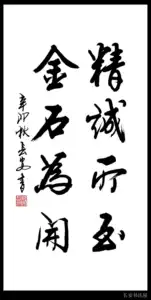 精誠所至
金石為開
辛卯秋長安書